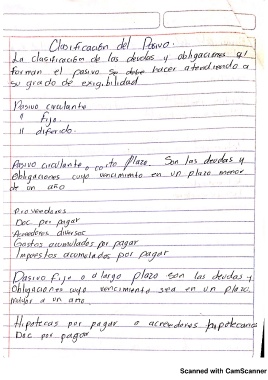 Clasificación del Pasivo.
La clasificación de las deudas y obligaciones q'
forman el pasivo se debe hacer atendiendo a
su grado de exigibilidad.
Pasivo circulante
" Fijo.
" diferido.
Pasivo circulante o corto plazo. Son las deudas y
Obligaciones cuyo vencimiento en un plazo menor
de un año
Proveedores
Doc por pagar
Acreedores diversos
Gastos acumulados por pagar
Impuestos acumulados por pagar
Pasivo fijo o a largo plazo son las deudas y
Obligaciones cuyo vencimiento sea en un plazo
mayor a un año.
Hipotecas por pagar o acreedores hipotecarios
Doc por pagar
Scanned with CamScanner